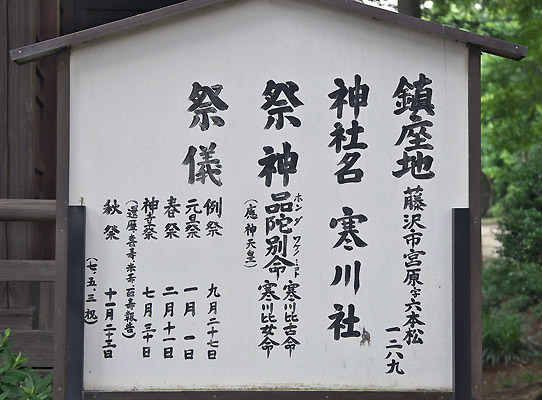 鎮座地 藤沢市宮原字六本松
一二八九
神社名 寒川社
祭神 品陀別命 寒川比古命
ホンダワケノミコト 寒川比女命
(応神天皇)
祭儀
例祭 九月二十七日
元旦祭 一月一日
春祭 二月十一日
神幸祭 七月三十日
(還暦・喜寿・米寿・百寿報告)
秋祭 十一月二十三日
(七、五、三祝)